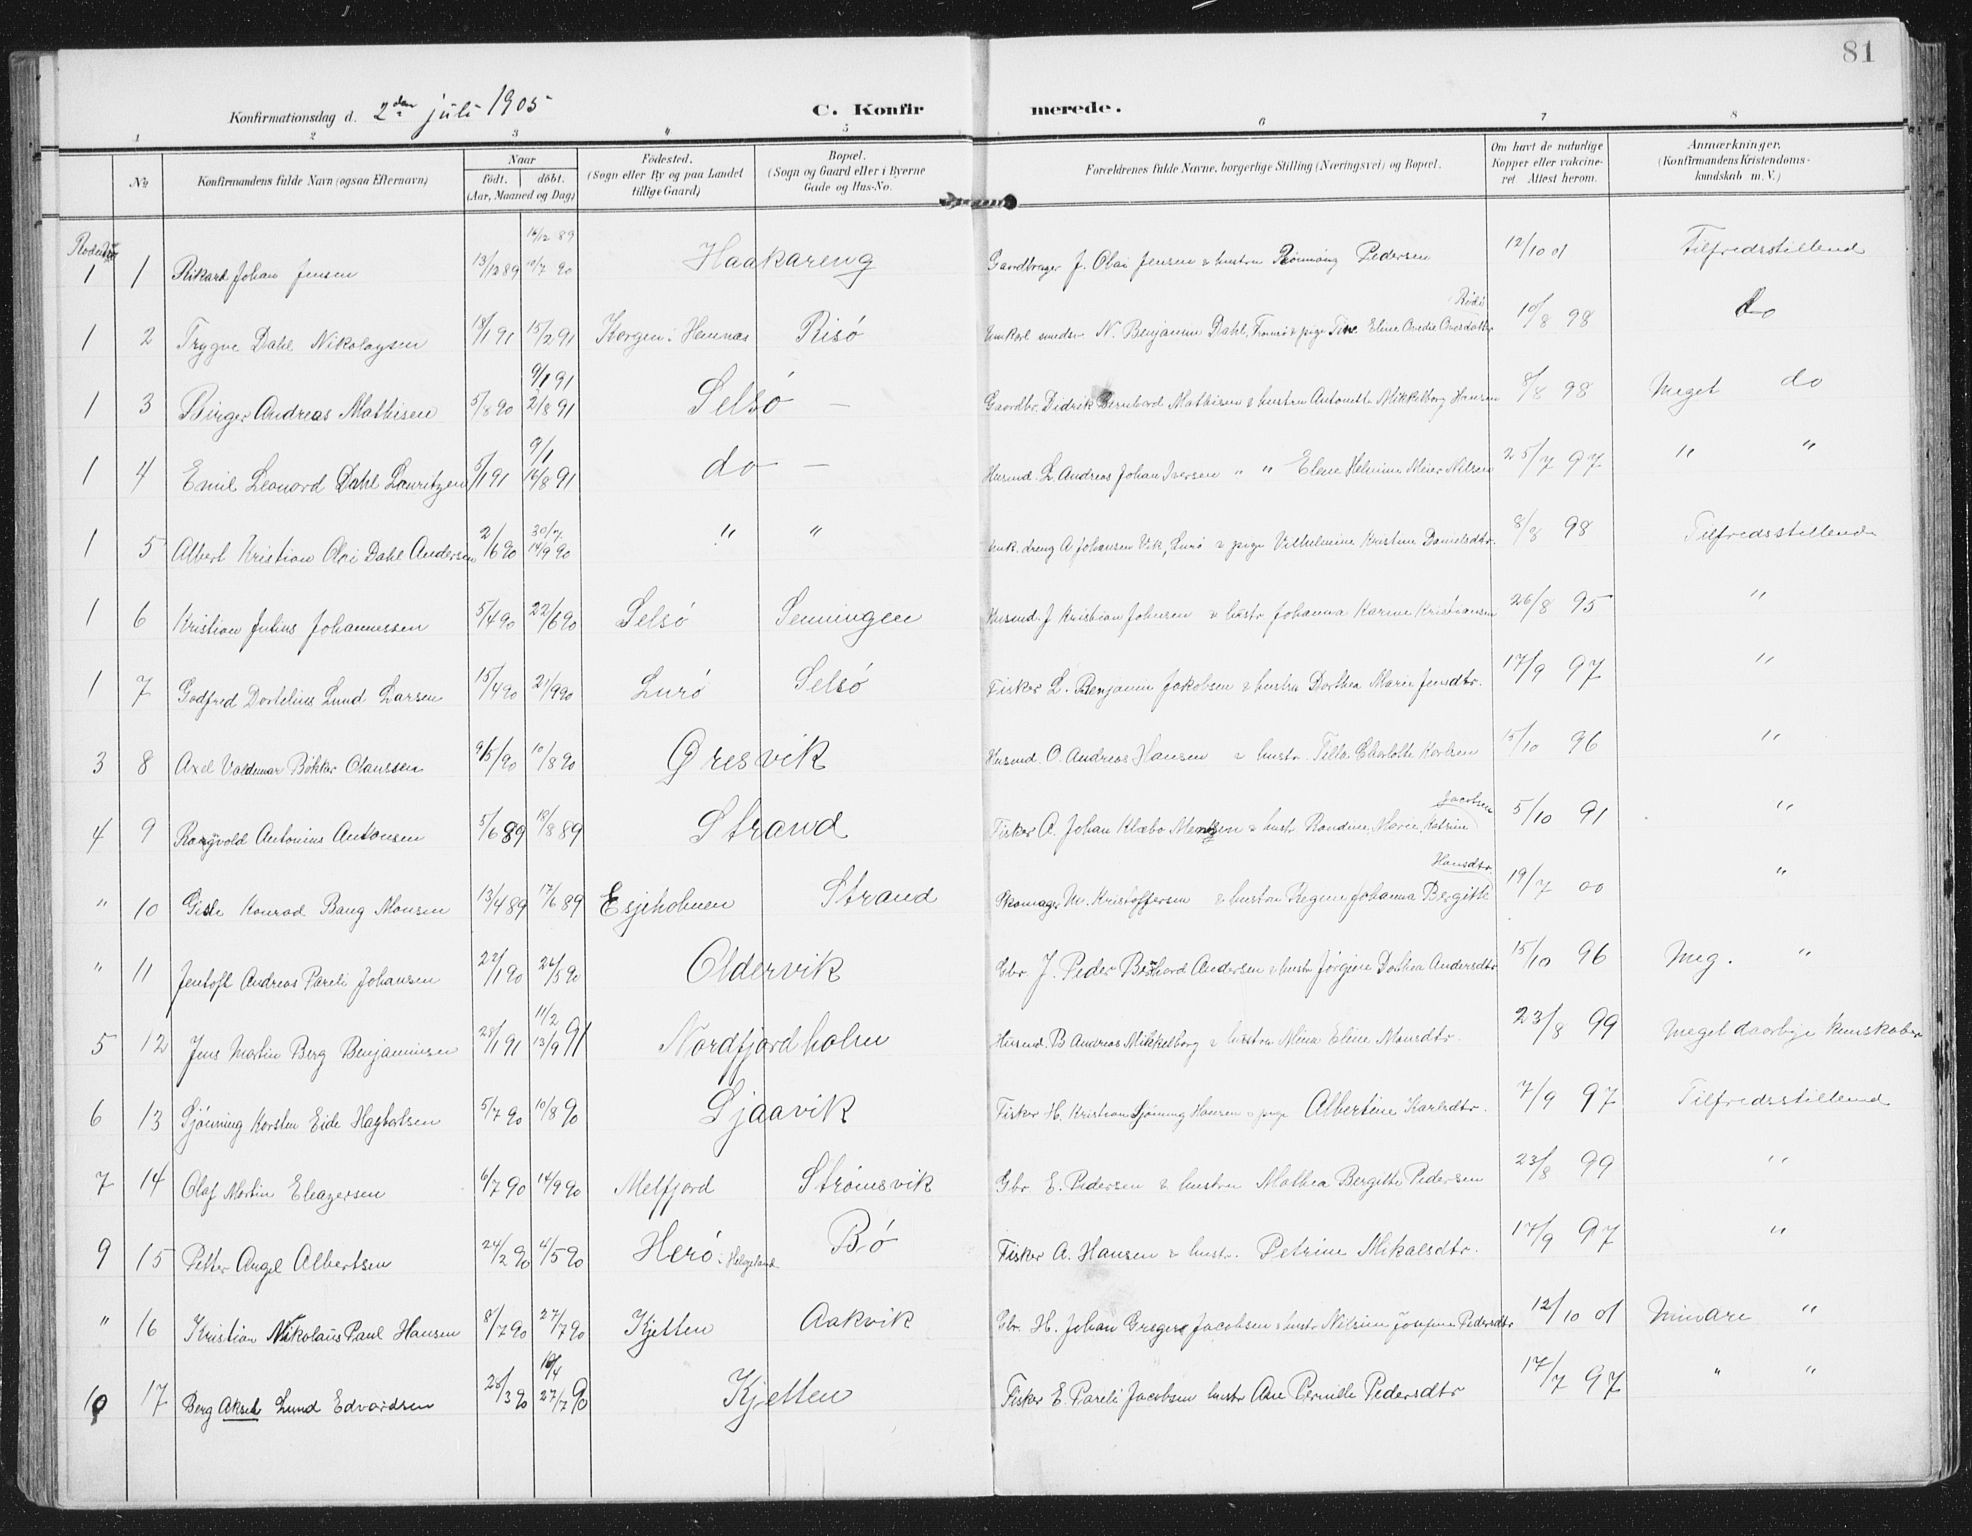 81
Konfirmationsdag d. 2den juli 1905 C. Konfirmerede.
1 2 3 4 5 6 7 8
No
Konfirmandens fulde Navn (ogsaa Efternavn)
Naar
födt. döbt.
(Aar, Maaned og Dag)
Födested.
(Sogn eller By og paa Landet
tillige Gaard)
Bopæl.
(Sogn og Gaard eller i Byerne
Gade og Hus-No.
Forældrenes fulde Navne, borgerlige Stilling (Næringsvei) og Bopæl.
Om havt de naturlige
Kopper eller vakcine-
ret Attest herom.
Anmærkninger.
(Konfirmandens Kristendoms-
kundskab m. V.)
1 1 Rikard Johan Jensen 13/12 89 14/12 89 Haakareng Gaardbruger J. Olai Jensen & hustru Pedersen 12/10 01 Tilfredsstillend
1 2 Trygve Dahl Nikolaysen 18/1 91 15/2 91 Korgen i Hemnæs Risö N. Benjamin Dahl, & pige Eline Rödö 10/8 98 do
1 3 Birger Andreas Mathisen 5/8 90 9/1 91 2/8 91 Selsö — Gaardbr. Didrik Bernhard Mathisen & hustru Antonette Mikkelborg Hansen 8/8 98 Meget do
1 4 Emil Leonard Dahl Lauritzen 5/1 91 9/1 16/8 91 do — Husmd. L. Andreas Johan Iversen " " Elene Helmine Meier Nilsen 25/7 97 " "
1 5 Albert Kristian Olai Dahl Andersen 2/6 90 30/7 14/9 90 " " Unk. dreng A Johansen Vik, Lurö & pige Vilhelmine Kristine Danielsdtr. 8/8 98 Tilfredsstillende
1 6 Kristian Julius Johannessen 5/4 90 22/6 90 Selsö Senningen Husmd. J Kristian Johnsen & hustr Johanna Karine Kristiansen 26/8 95 "
1 7 Godfred Dortelius Lund Larsen 15/4 90 21/9 90 Lurö Selsö Fisker L. Benjamin Jakobsen & hustru Dorthea Marie Jensdtr. 17/9 97 "
3 8 Axel Valdemar Bökker Olaussen 9/5/90 10/8 90 Öresvik Husmd. O. Andreas Hansen & hustr. Charlotte Karlsen 15/10 96 "
4 9 Ragnvald Antonius Antonsen 5/6 89 18/8 89 Strand Fisker A. Johan Klæbo Mentzen & hustr. Randine Marie Katrine Jacobsen 5/10 91 "
" 10 Gisle Konrad Bang Monsen 13/4 89 17/6 89 Esjeholmen Strand Skomager M. Kristoffersen & hustru Regine Johanna Bergitte Hansdtr. 19/7 00 "
" 11 Jentoft Andreas Pareli Johansen 22/1 90 26/5 90 Oldervik Gbr. J. Peder Bernhard Andersen & hustr Jörgine Dorthea Andersdtr 15/10 96 Meg. "
5 12 Jens Martin Berg Benjaminsen 28/1 91 11/2 13/9 91 Nordfjordholm Husmd. B Andreas Mikkelborg & hustru Mina Elene Monsdtr. 23/8 99 Meget daarlige kundskaber
6 13 Sjönning Korsten Eide Hagbartsen 5/7 90 10/8 90 Sjaavik Fisker H. Kristian Sjönning Hansen & pige Albertine Karlsdtr. 7/9 97 Tilfredsstillend
7 14 Olaf Martin Eleazersen 6/7 90 14/9 90 Melfjord Strömsvik Gbr. E. Pedersen & hustru Mathea Bergitte Pedersen 23/8 99 "
9 15 Petter Angel Albertsen 24/2 90 4/5 90 Herö i Helgeland Bö Fisker A. Hansen & hustr. Petrine Mikalsdtr. 17/9 97 "
" 16 Kristian Nikolaus Paul Hansen 8/7 90 27/7 90 Kjetten Aakvik Gbr. H. Johan Jacobsen & hustr Nilsine Josefine Pedersdtr 12/10 01 Mindre "
10 17 Berg Aksel Lund Edvardsen 26/3 90 10/4 27/7 90 Kjetten Fisker E. Pareli Jacobsen hustr Ane Pernille Pedersdtr 17/7 97 " "